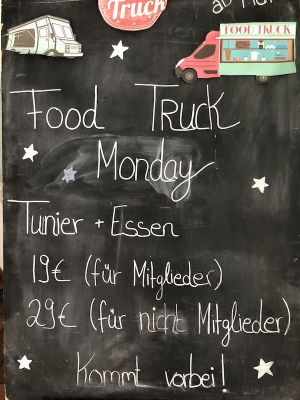 Truck
FOOD TRUCK
Food Truck
Monday
Tunier + Essen
19€ (für Mitglieder)
29€ (für nicht Mitglieder)
Kommt vorbei!